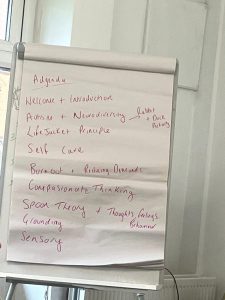 Adgenda
Welcome + Introduction
Autism + Neurodiversity → Rabbit + Duck Activity
Life Jacket Principle
Self Care
Burnout + Reducing Demands
Compassionate Thinking
Spoon Theory + Thoughts feelings Behaviour
Grounding
Sensory